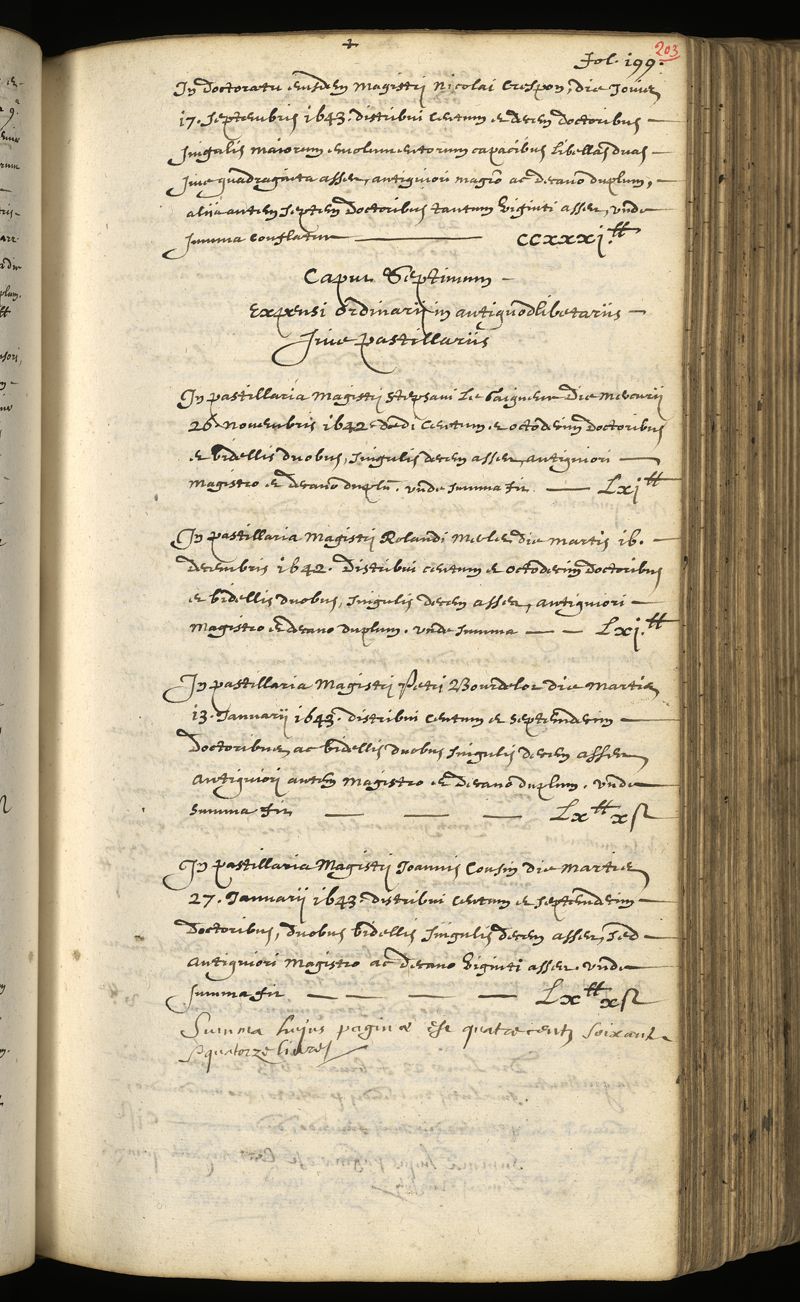 203
Fol. 199.
In doctoratu eiusdem Magistri Nicolai Crespon, die Jovis
17. Septembris 1643. distribui centum et decem doctoribus
singulis maiorum emolumentorum capacibus libellas duas
sive quadraginta asses, antiquiori magro ac decano duplum,
aliis autem septem doctoribus tantum viginti asses, unde
summa conflatur CCXXXI.tt
Caput Septimum
Expensi ordinarii in antiquodlibetariis
sive pastillariis
In pastillaria Magistri Stephani Le die Mercurii
26 Novembris 1642 dedi centum et octodecim doctoribus
et bidellis duobus, singulis decem asses, antiquiori
Magistro et decano duplū. unde summa fit LXI tt
In pastillaria Magistri Rolandi Merlet die Martis 16.
Decembris 1642. Distribui centum et octodecim doctoribus
et bidellis duobus, singulis decem asses, antiquiori
Magistro et decano duplum. unde summa LXI.tt
In pastillaria Magistri Petri Bourdelot die Martis
13. Januarii 1643. distribui centum et septemdecim
Doctoribus, ac bidellis duobus singulis decem asses
Antiquiori autem Magistro et Decano duplum. unde
summa fit LX tt X s
In pastillaria Magistri Joannis Cousin die Martis
27. Januarii 1643. distribui centum et septemdecim
Doctoribus, duobus bidellis singulis decem asses, sed
Antiquiori Magistro ac decano viginti asses. unde
summa fit LX tt X s
Summa hujus paginæ est quatre cents soixante
quatorze livres